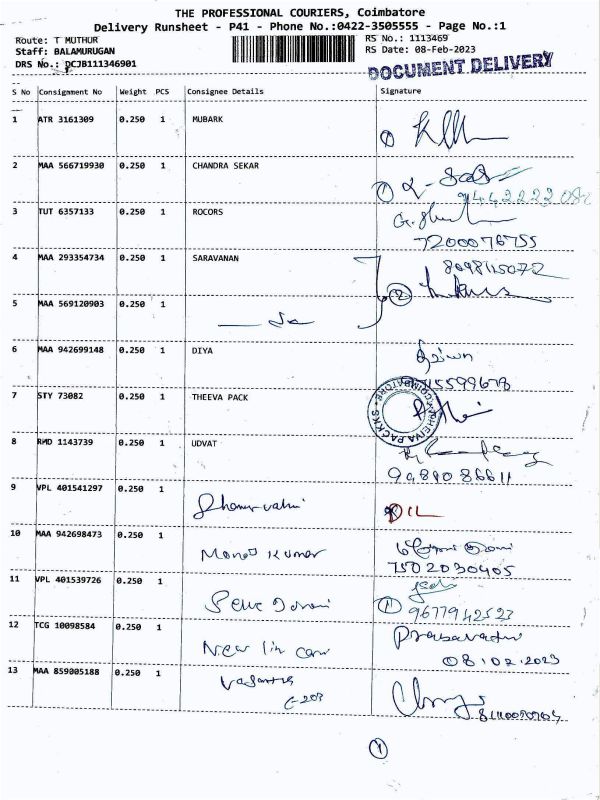 THE PROFESSIONAL COURIERS, Coimbatore
Delivery Runsheet - P41 - Phone No.:0422-3505555 - Page No.:1
Route: T MUTHUR
RS No.: 1113469
Staff: BALAMURUGAN
RS Date: 08-Feb-2023
DRS No.: DCJB111346901
DOCUMENT DELIVERY
S No Consignment No Weight PCS Consignee Details Signature
1 ATR 3161309 0.250 1 MUBARK
2 MAA 566719930 0.250 1 CHANDRA SEKAR
3 TUT 6357133 0.250 1 ROCORS
7200076755
4 MAA 293354734 0.250 1 SARAVANAN
5 MAA 569120903 0.250 1
6 MAA 942699148 0.250 1 DIYA
7 STY 73082 0.250 1 THEEVA PACK
8 RMD 1143739 0.250 1 UDVAT
9 VPL 401541297 0.250 1
10 MAA 942698473 0.250 1 Kumar
7502030405
11 VPL 401539726 0.250 1
9677942523
12 TCG 10098584 0.250 1 New
08.02.2023
13 MAA 859005188 0.250 1